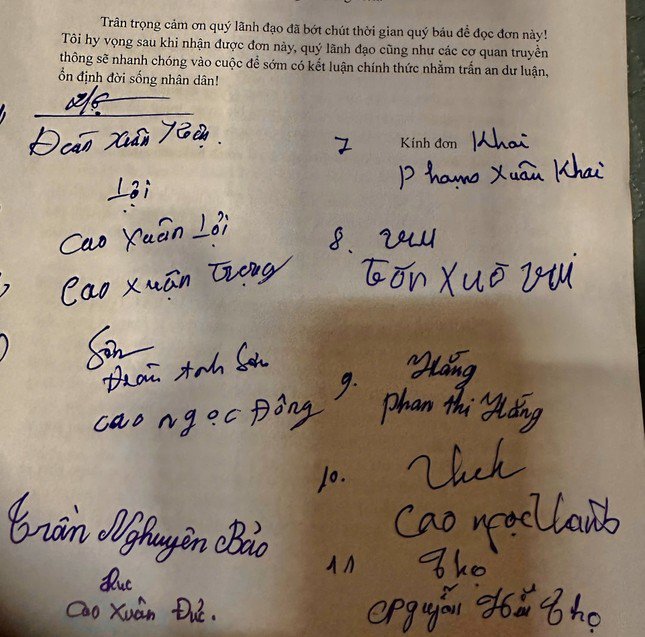 Trân trọng cảm ơn quý lãnh đạo đã bớt chút thời gian quý báu để đọc đơn này!
Tôi hy vọng sau khi nhận được đơn này, quý lãnh đạo cũng như các cơ quan truyền
thông sẽ nhanh chóng vào cuộc để sớm có kết luận chính thức nhằm trấn an dư luận,
ổn định đời sống nhân dân!
Xuân
7 Kính đơn Khai
Phạm Xuân Khai
Lợi
Cao Xuân Lợi
8. Vui
Xuân Vui
Cao Xuân Trọng
Sơn
Anh Sơn
9. Hằng
Phan Thị Hằng
Cao Ngọc Đông
10.
Cao Ngọc
Trần Nguyên Bảo
11 Thọ
Thọ
Đức
Cao Xuân Đức.